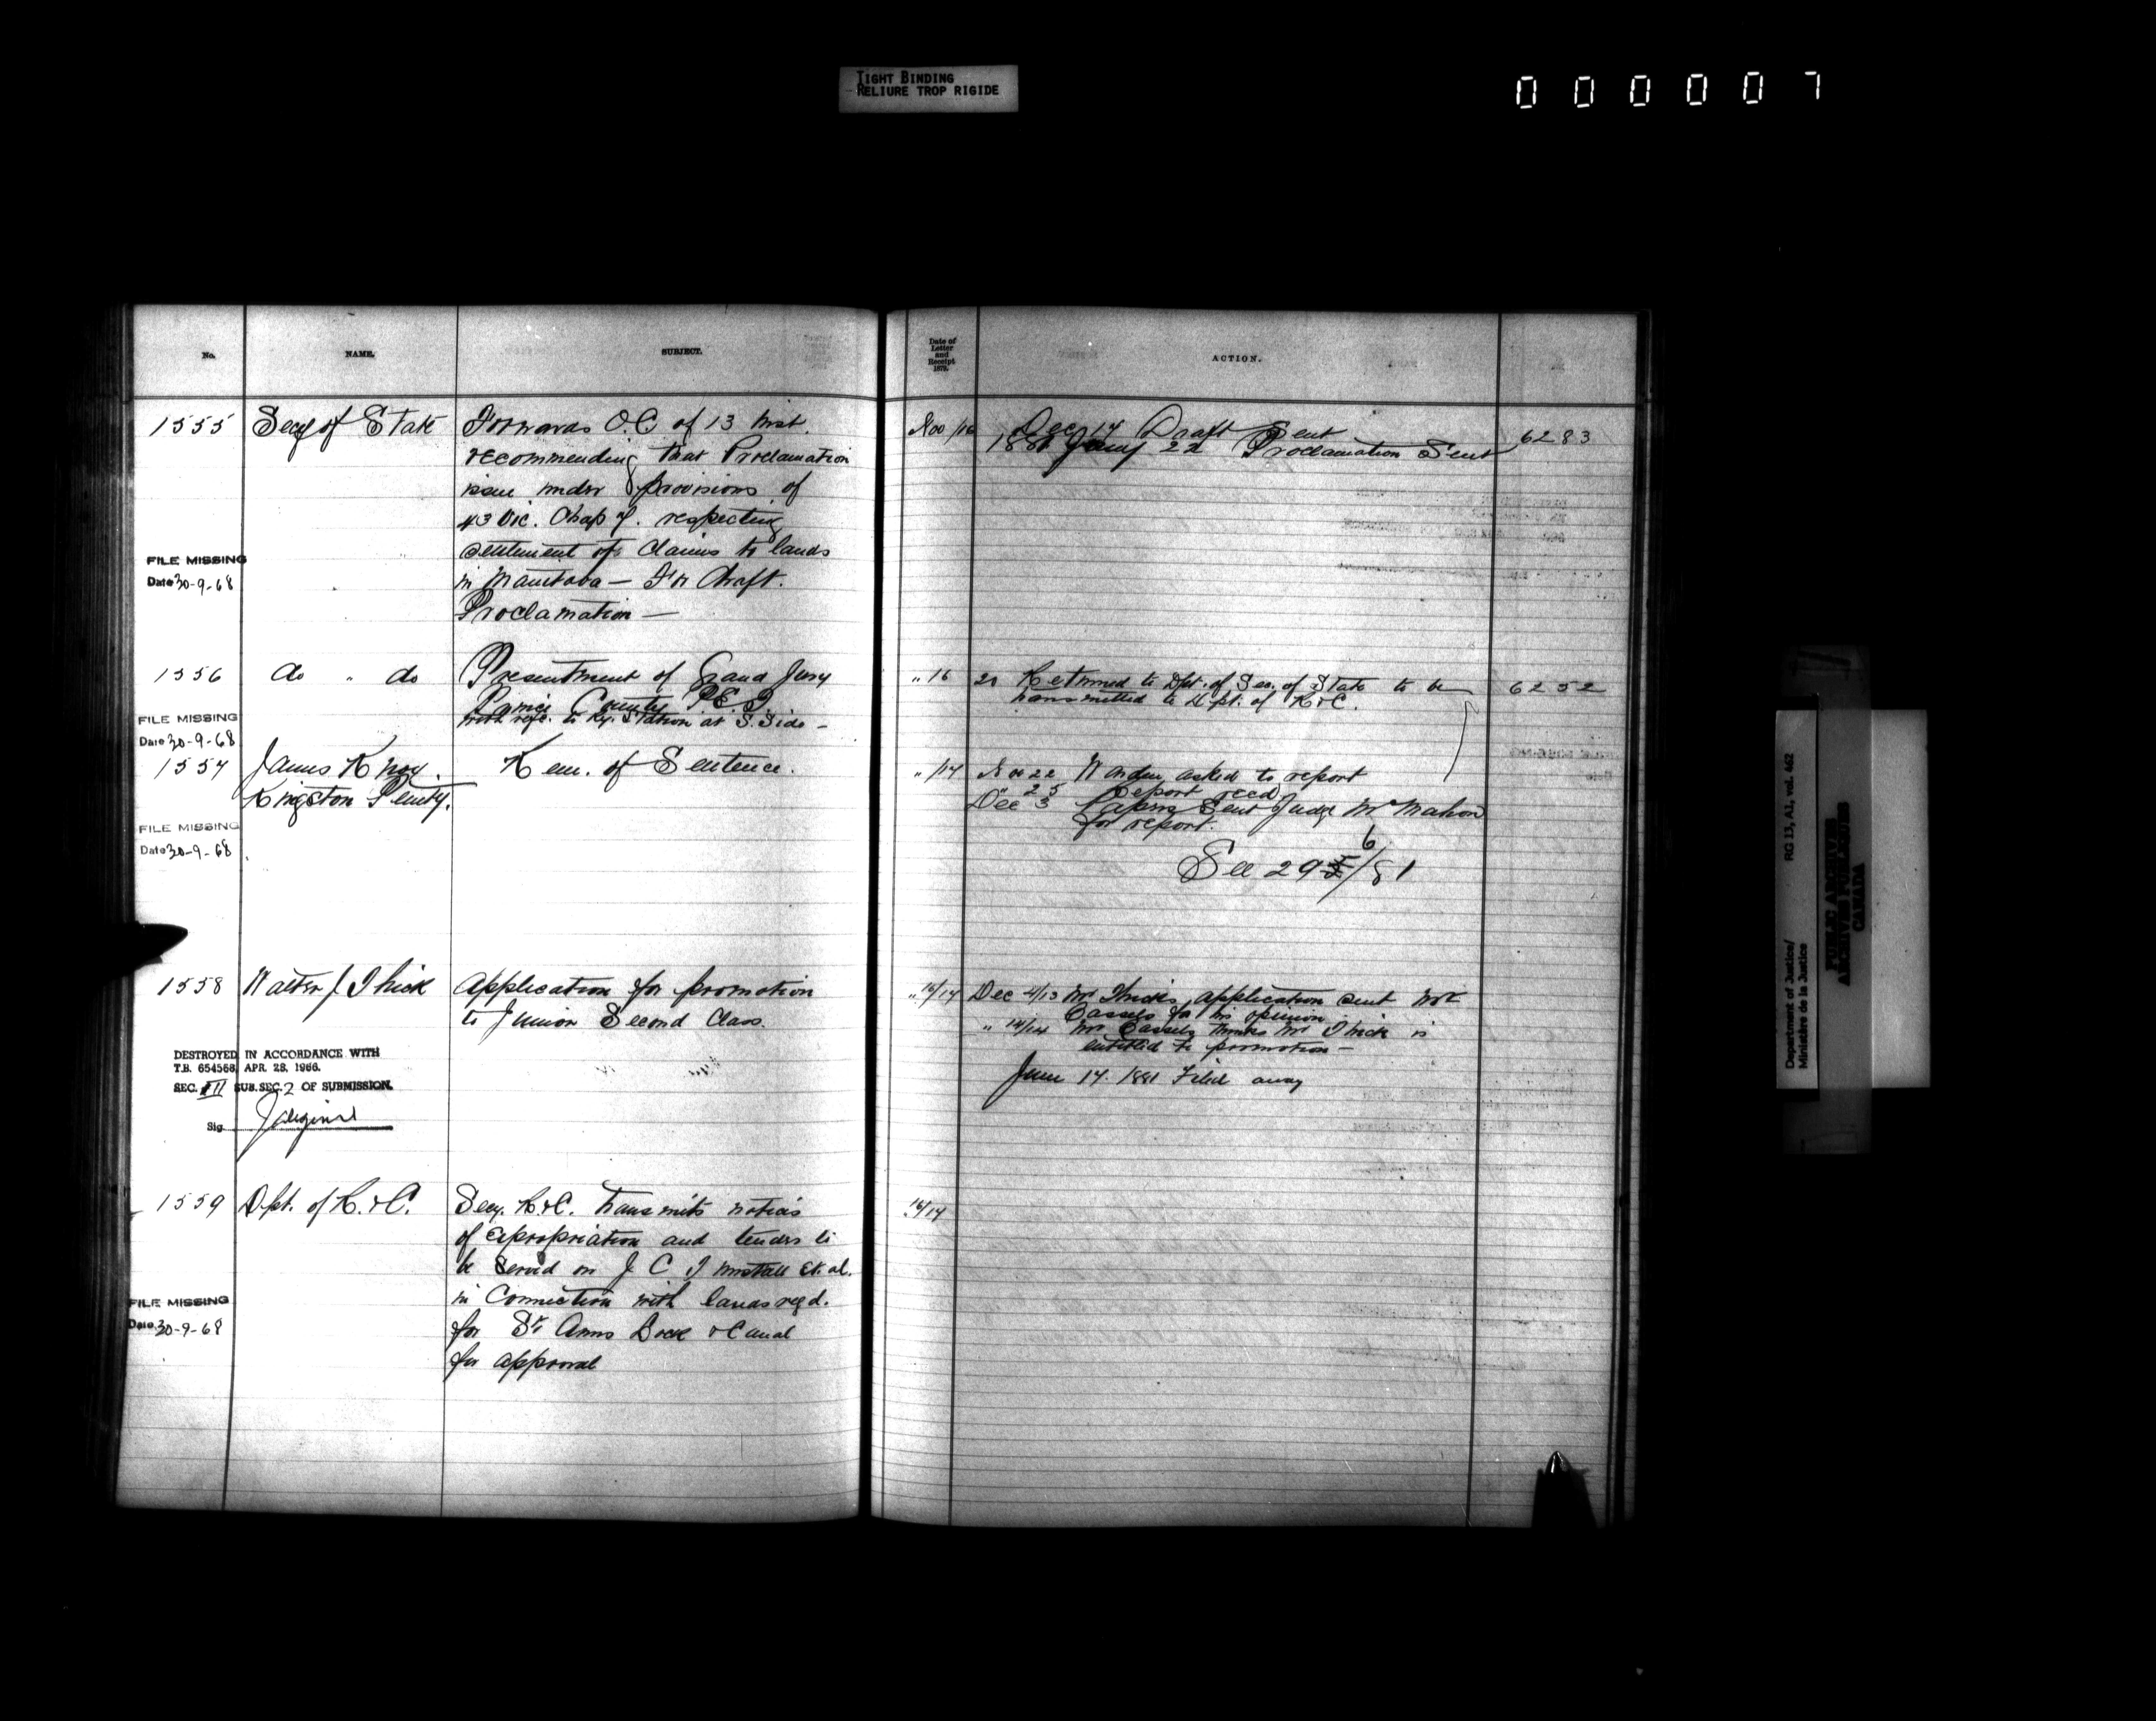 TIGHT BINDING
RELIURE TROP RIGIDE
000007
No.
NAME.
SUBJECT.
Date of
Letter
and
Receipt
1879.
ACTION.
1555
Secy of State
Forwards O.C of 13 inst.
recommending that Proclamation
issue under provisions of
43 Vic. Chap 7. respecting
settlement of claims to lands
in Manitoba — For draft.
Proclamation —
FILE MISSING
Date 30-9-68
Nov /16
Dec 17 Draft Sent
1881 Jany 22 Proclamation Sent
6283
1556
do " do
Presentment of Grand Jury
Prince County P.E.I.
with refc. to Ry. Station at S. Side –
FILE MISSING
Date 30-9-68
" 16
Returned to Dpt. of Sec. of State to be
transmitted to Dpt. of R & C.
6252
1557
James Knox.
Kingston Penity.
Rem. of Sentence.
FILE MISSING
Date 30-9-68
" /17
Nov 22 Warden asked to report
" 25 Report recd
Dec 3 Papers Sent Judge McMahon
for report.
See 296/81
1558
Walter J Thick
Application for promotion
to Junior Second Class.
DESTROYED IN ACCORDANCE WITH
T.B. 654568, APR. 28, 1966.
SEC. III SUB.SEC. 2 OF SUBMISSION.
Sig.
" 16/17
Dec 4/13 Mr Thicks application sent Mr
Cassels for his opinion
" 14/14 Mr Cassels thinks Mr Thick is
entitled to promotion —
June 17. 1881 Filed away
1559
Dpt. of R. & C.
Secy. R & C. transmits notices
of Expropriation and tenders to
be served on J C et. al.
in Connection with lands reqd.
for St Anns Lock & Canal
for approval
FILE MISSING
Date 30-9-68
16/17
Department of Justice/
Ministère de la Justice
RG 13, A1, vol. 462
PUBLIC ARCHIVES
ARCHIVES PUBLIQUES
CANADA